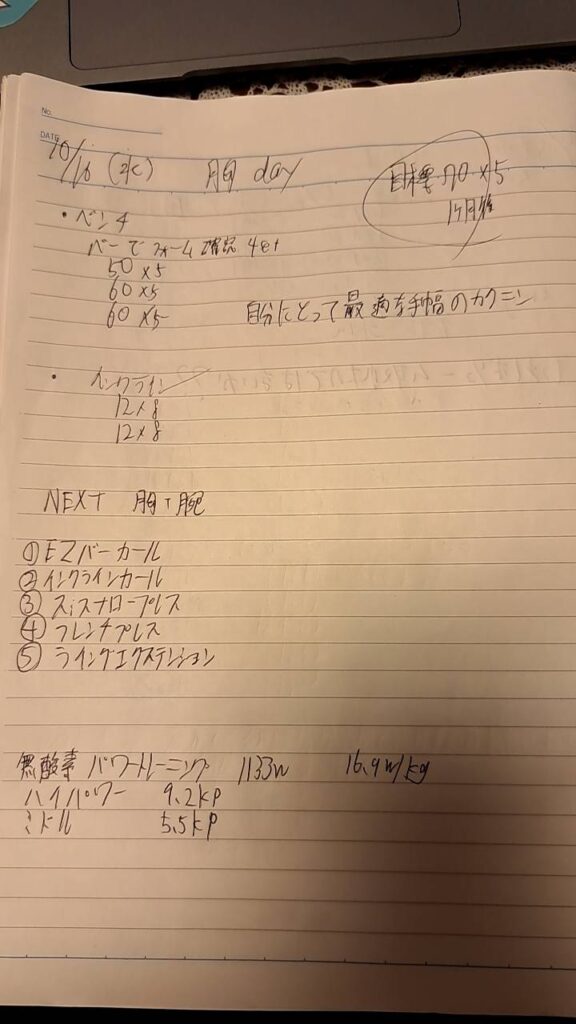 No.
DATE
10/16 (水) 胸 day
目標 70×5
1ヶ月後
・ベンチ
バーでフォーム確認 4set
50×5
60×5
60×5
自分にとって最適な手幅のカクニン
・インクライン
12×8
12×8
NEXT 胸+腕
①EZバーカール
②インクラインカール
③スミスナロープレス
④フレンチプレス
⑤ライングエクステンション
無酸素パワートレーニング 1133w 16.9w/kg
ハイパワー 9.2kp
ミドル 5.5kp